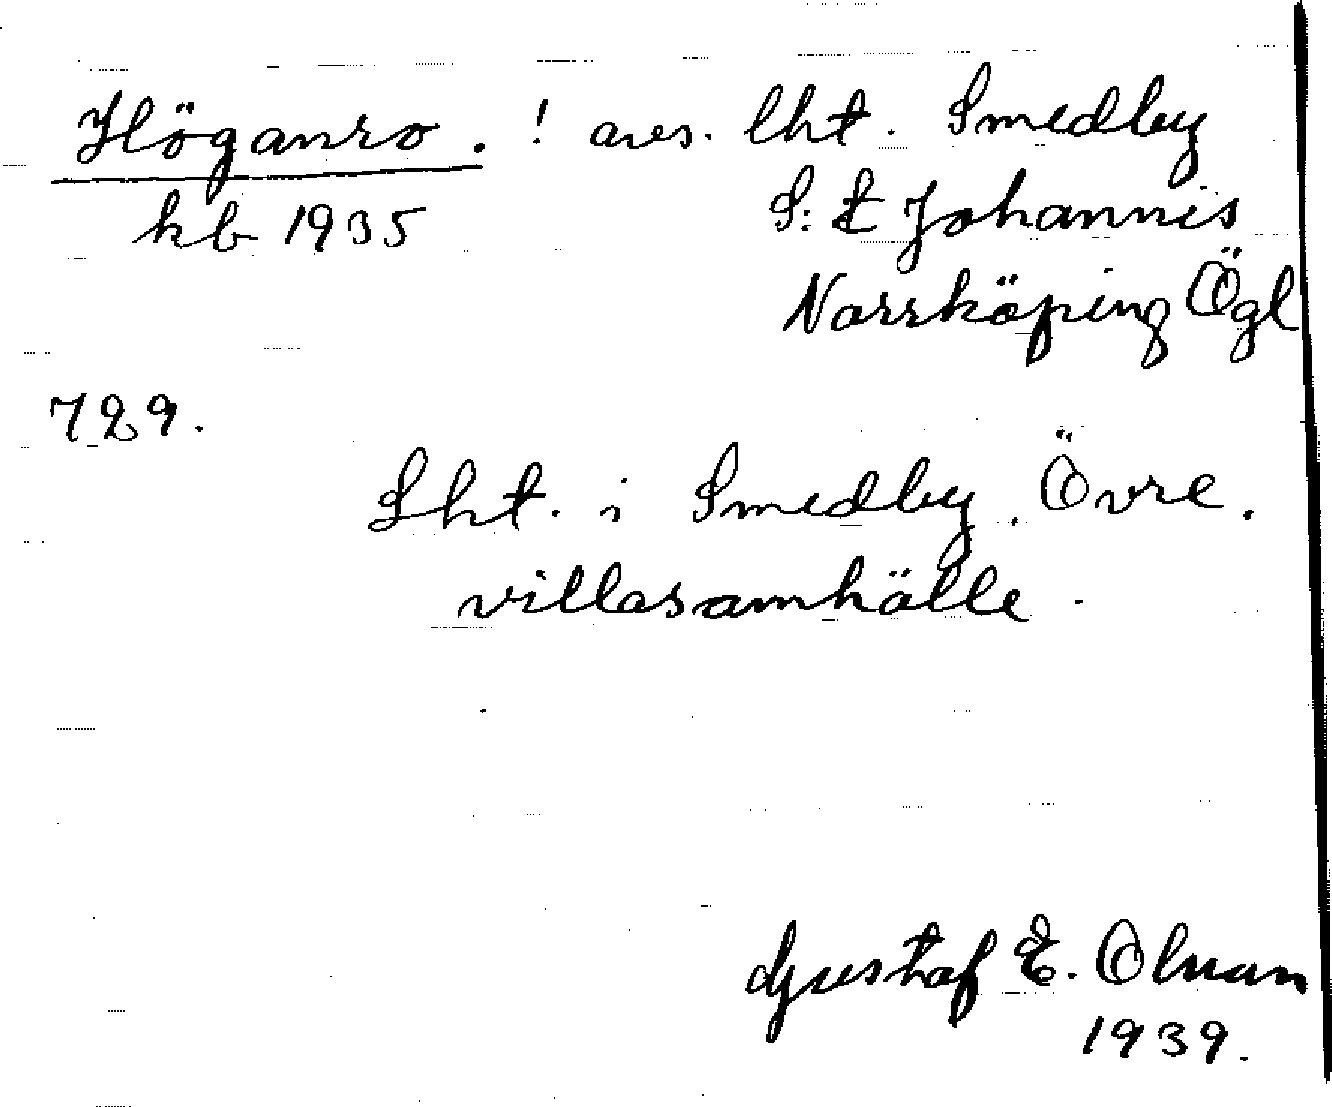 Höganro. ! avs. lht. Smedby
kb 1935 S:t Johannis
Norrköping Ögl
729.
Lht. i Smedby. Övre.
villasamhälle.
Gustaf E. Olman
1939.